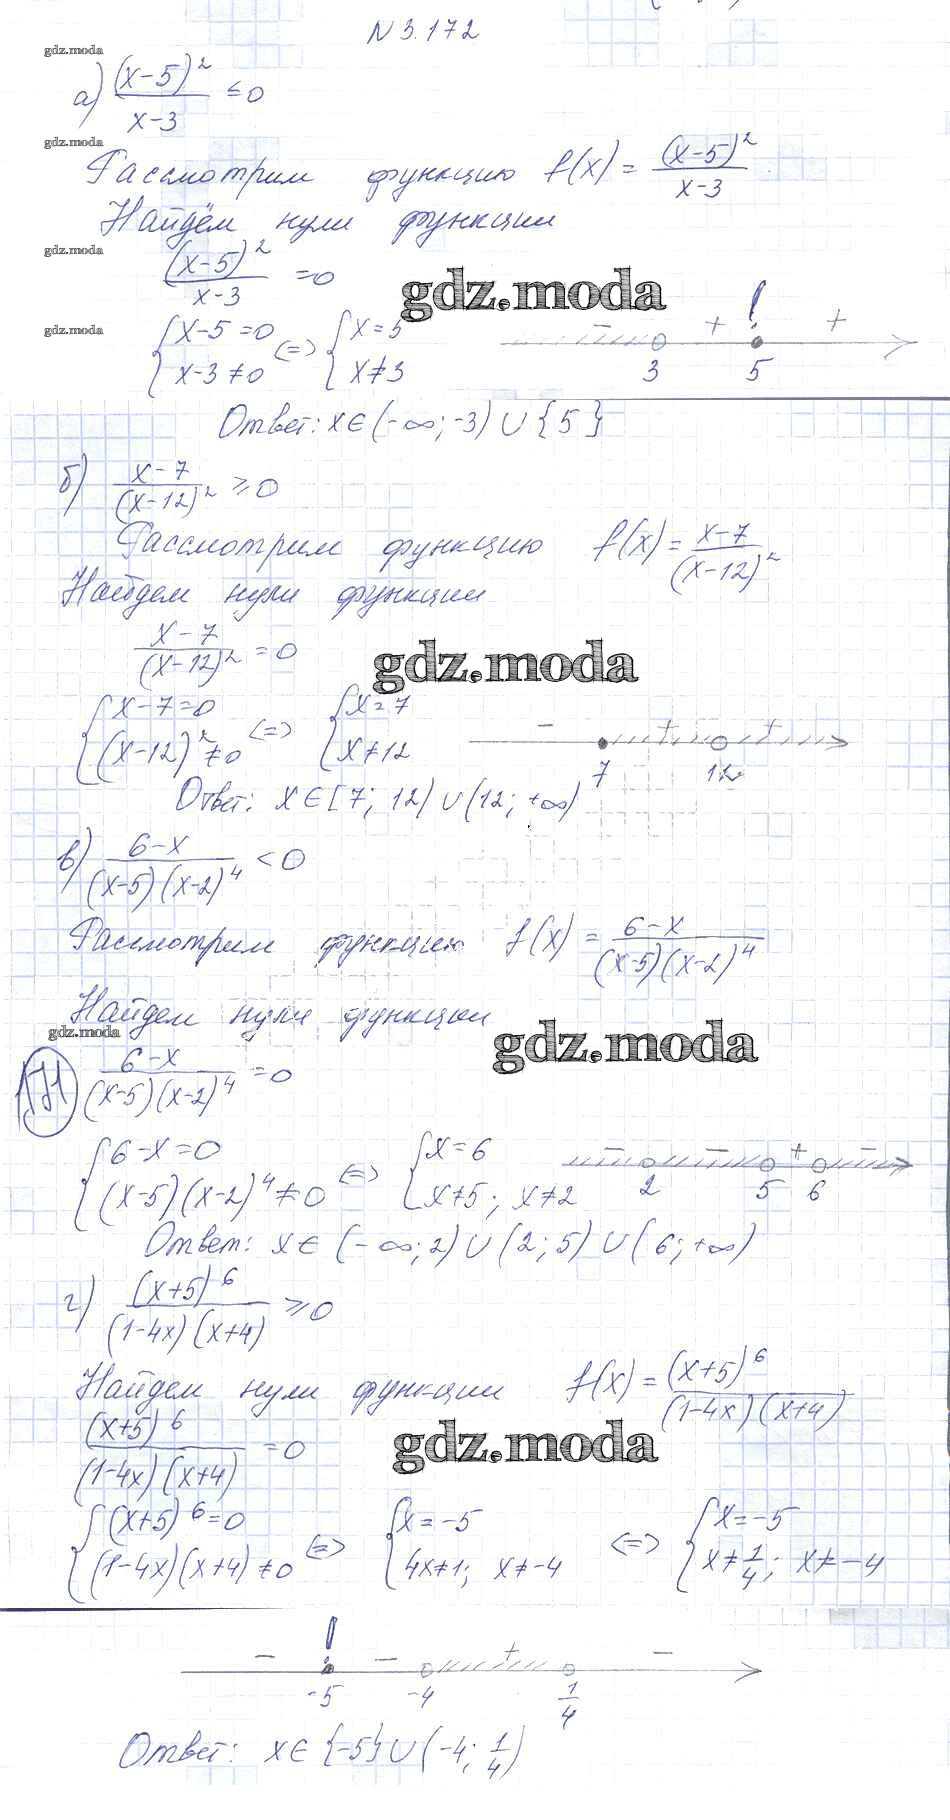 N 3.172
gdz.moda
а) (x-5)²/(x-3) ≤ 0
gdz.moda
Рассмотрим функцию f(x) = (x-5)²/(x-3)
Найдём нули функции
gdz.moda
(x-5)²/(x-3) = 0
gdz.moda
gdz.moda
{x-5=0 <=> {x=5
{x-3≠0 {x≠3
− + ! +
3 5
Ответ: x∈(-∞; -3)∪{5}
б) (x-7)/(x-12)² ≥ 0
Рассмотрим функцию f(x) = (x-7)/(x-12)²
Найдем нули функции
(x-7)/(x-12)² = 0
gdz.moda
{x-7=0 <=> {x=7
{(x-12)²≠0 {x≠12
− + +
7 12
Ответ: x∈[7; 12)∪(12; +∞)
в) (6-x)/((x-5)(x-2)⁴) < 0
Рассмотрим функцию f(x) = (6-x)/((x-5)(x-2)⁴)
Найдем нули функции
gdz.moda
gdz.moda
(6-x)/((x-5)(x-2)⁴) = 0
{6-x=0 <=> {x=6
{(x-5)(x-2)⁴≠0 {x≠5; x≠2
− − + −
2 5 6
Ответ: x∈(-∞; 2)∪(2; 5)∪(6; +∞)
г) (x+5)⁶/((1-4x)(x+4)) ≥ 0
Найдем нули функции f(x) = (x+5)⁶/((1-4x)(x+4))
(x+5)⁶/((1-4x)(x+4)) = 0
gdz.moda
{(x+5)⁶=0 <=> {x=-5 <=> {x=-5
{(1-4x)(x+4)≠0 {4x≠1; x≠-4 {x≠1/4; x≠-4
− ! − + −
-5 -4 1/4
Ответ: x∈{-5}∪(-4; 1/4)